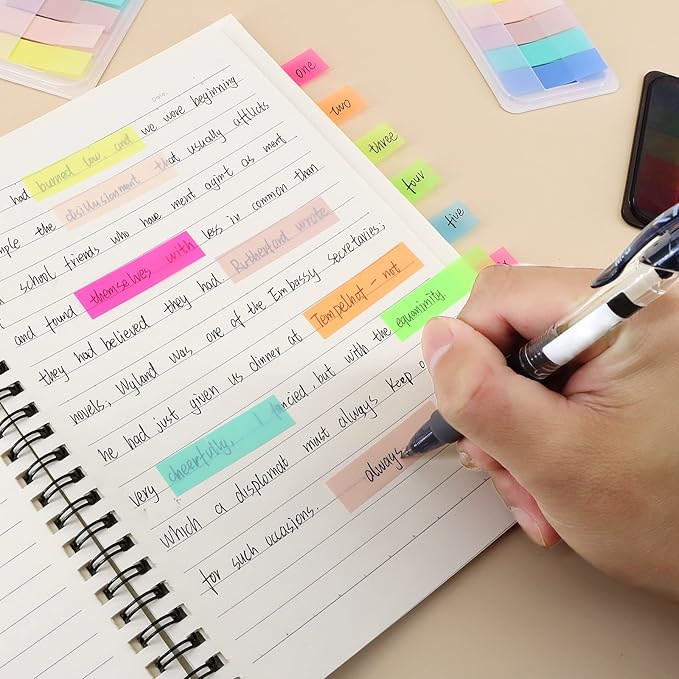 Date.
had burned low, and we were beginning
the disillusionment that usually afflicts
school friends who have meet again as ment
and found themselves with less in common than
they had believed they had Rutherford wrote
novels; Wyland was one of the Embassy secretaries;
he had just given us dinner at Tempelhof - not
very cheerfully, I fancied, but with the equanimity
which a diplomat must always keep
for such occasions. always
one
two
three
four
five